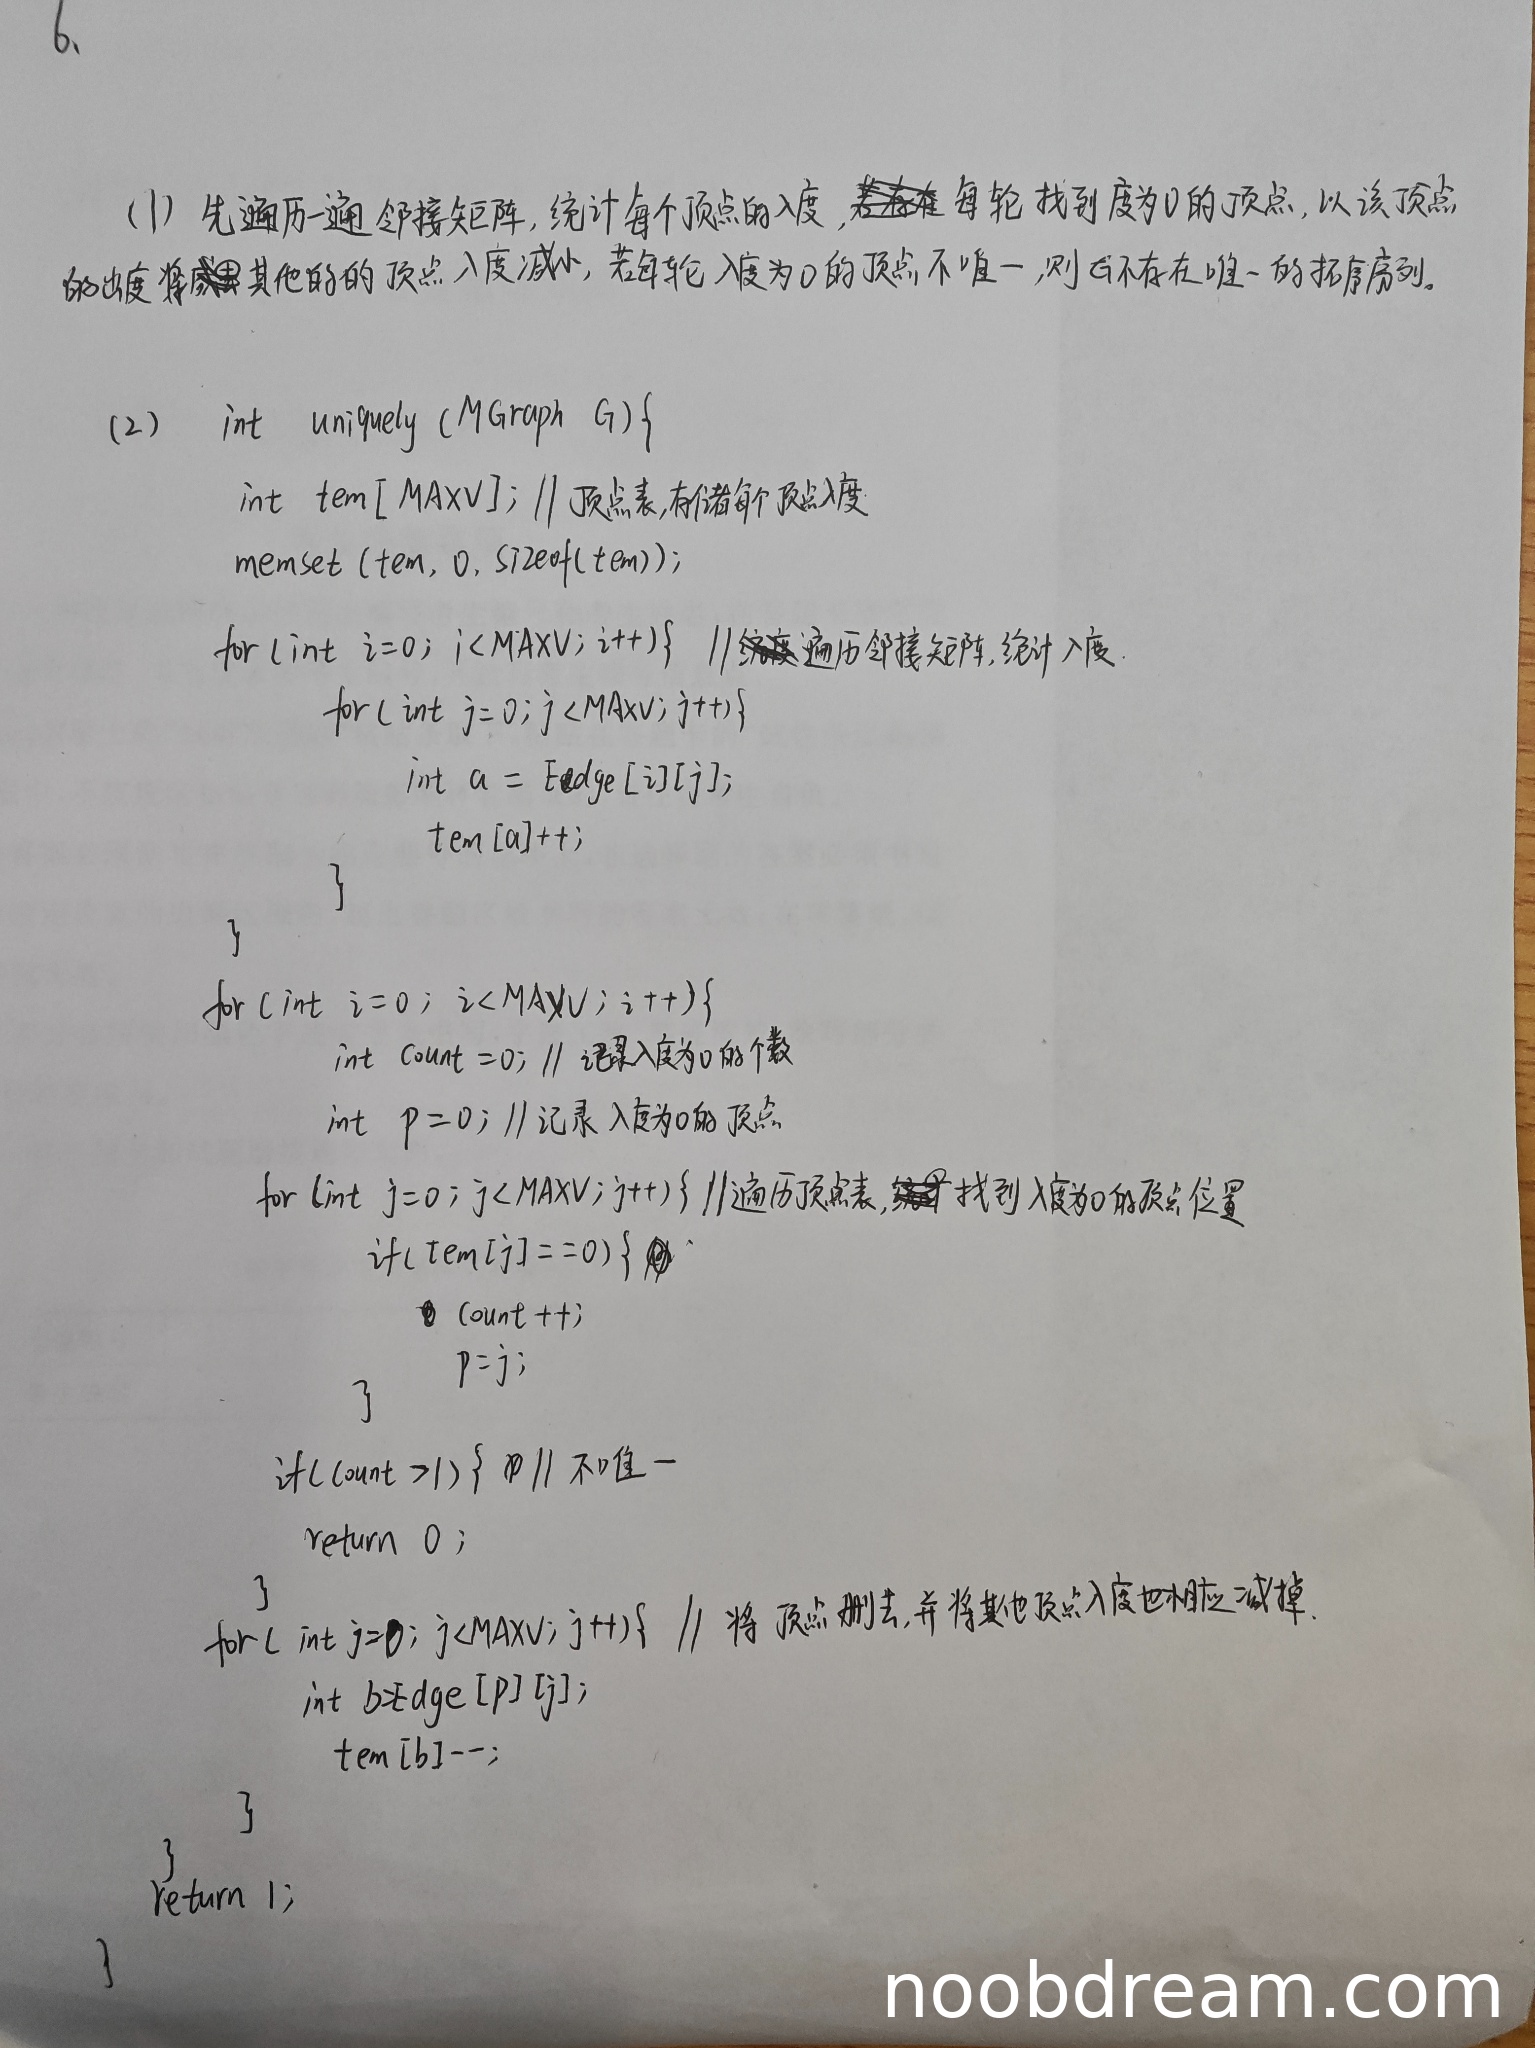 6、
(1) 先遍历一遍邻接矩阵,统计每个顶点的入度, 每轮找到度为0的顶点,以该顶点
的出度将其他的的顶点入度减小,若每轮入度为0的顶点不唯一,则G不存在唯一的拓序序列。
(2) int uniquely (MGraph G){
int tem[MAXV]; // 顶点表,存储每个顶点入度
memset(tem, 0, sizeof(tem));
for(int i=0; i<MAXV; i++){ // 遍历邻接矩阵,统计入度.
for(int j=0; j<MAXV; j++){
int a = Edge[i][j];
tem[a]++;
}
}
for(int i=0; i<MAXV; i++){
int count=0; // 记录入度为0的个数
int p=0; // 记录入度为0的顶点
for(int j=0; j<MAXV; j++){ // 遍历顶点表, 找到入度为0的顶点位置
if(tem[j]==0){
count++;
p=j;
}
if(count>1){ // 不唯一
return 0;
}
for(int j=0; j<MAXV; j++){ // 将顶点删去,并将其他顶点入度也相应减掉.
int b=Edge[p][j];
tem[b]--;
}
}
return 1;
}
noobdream.com